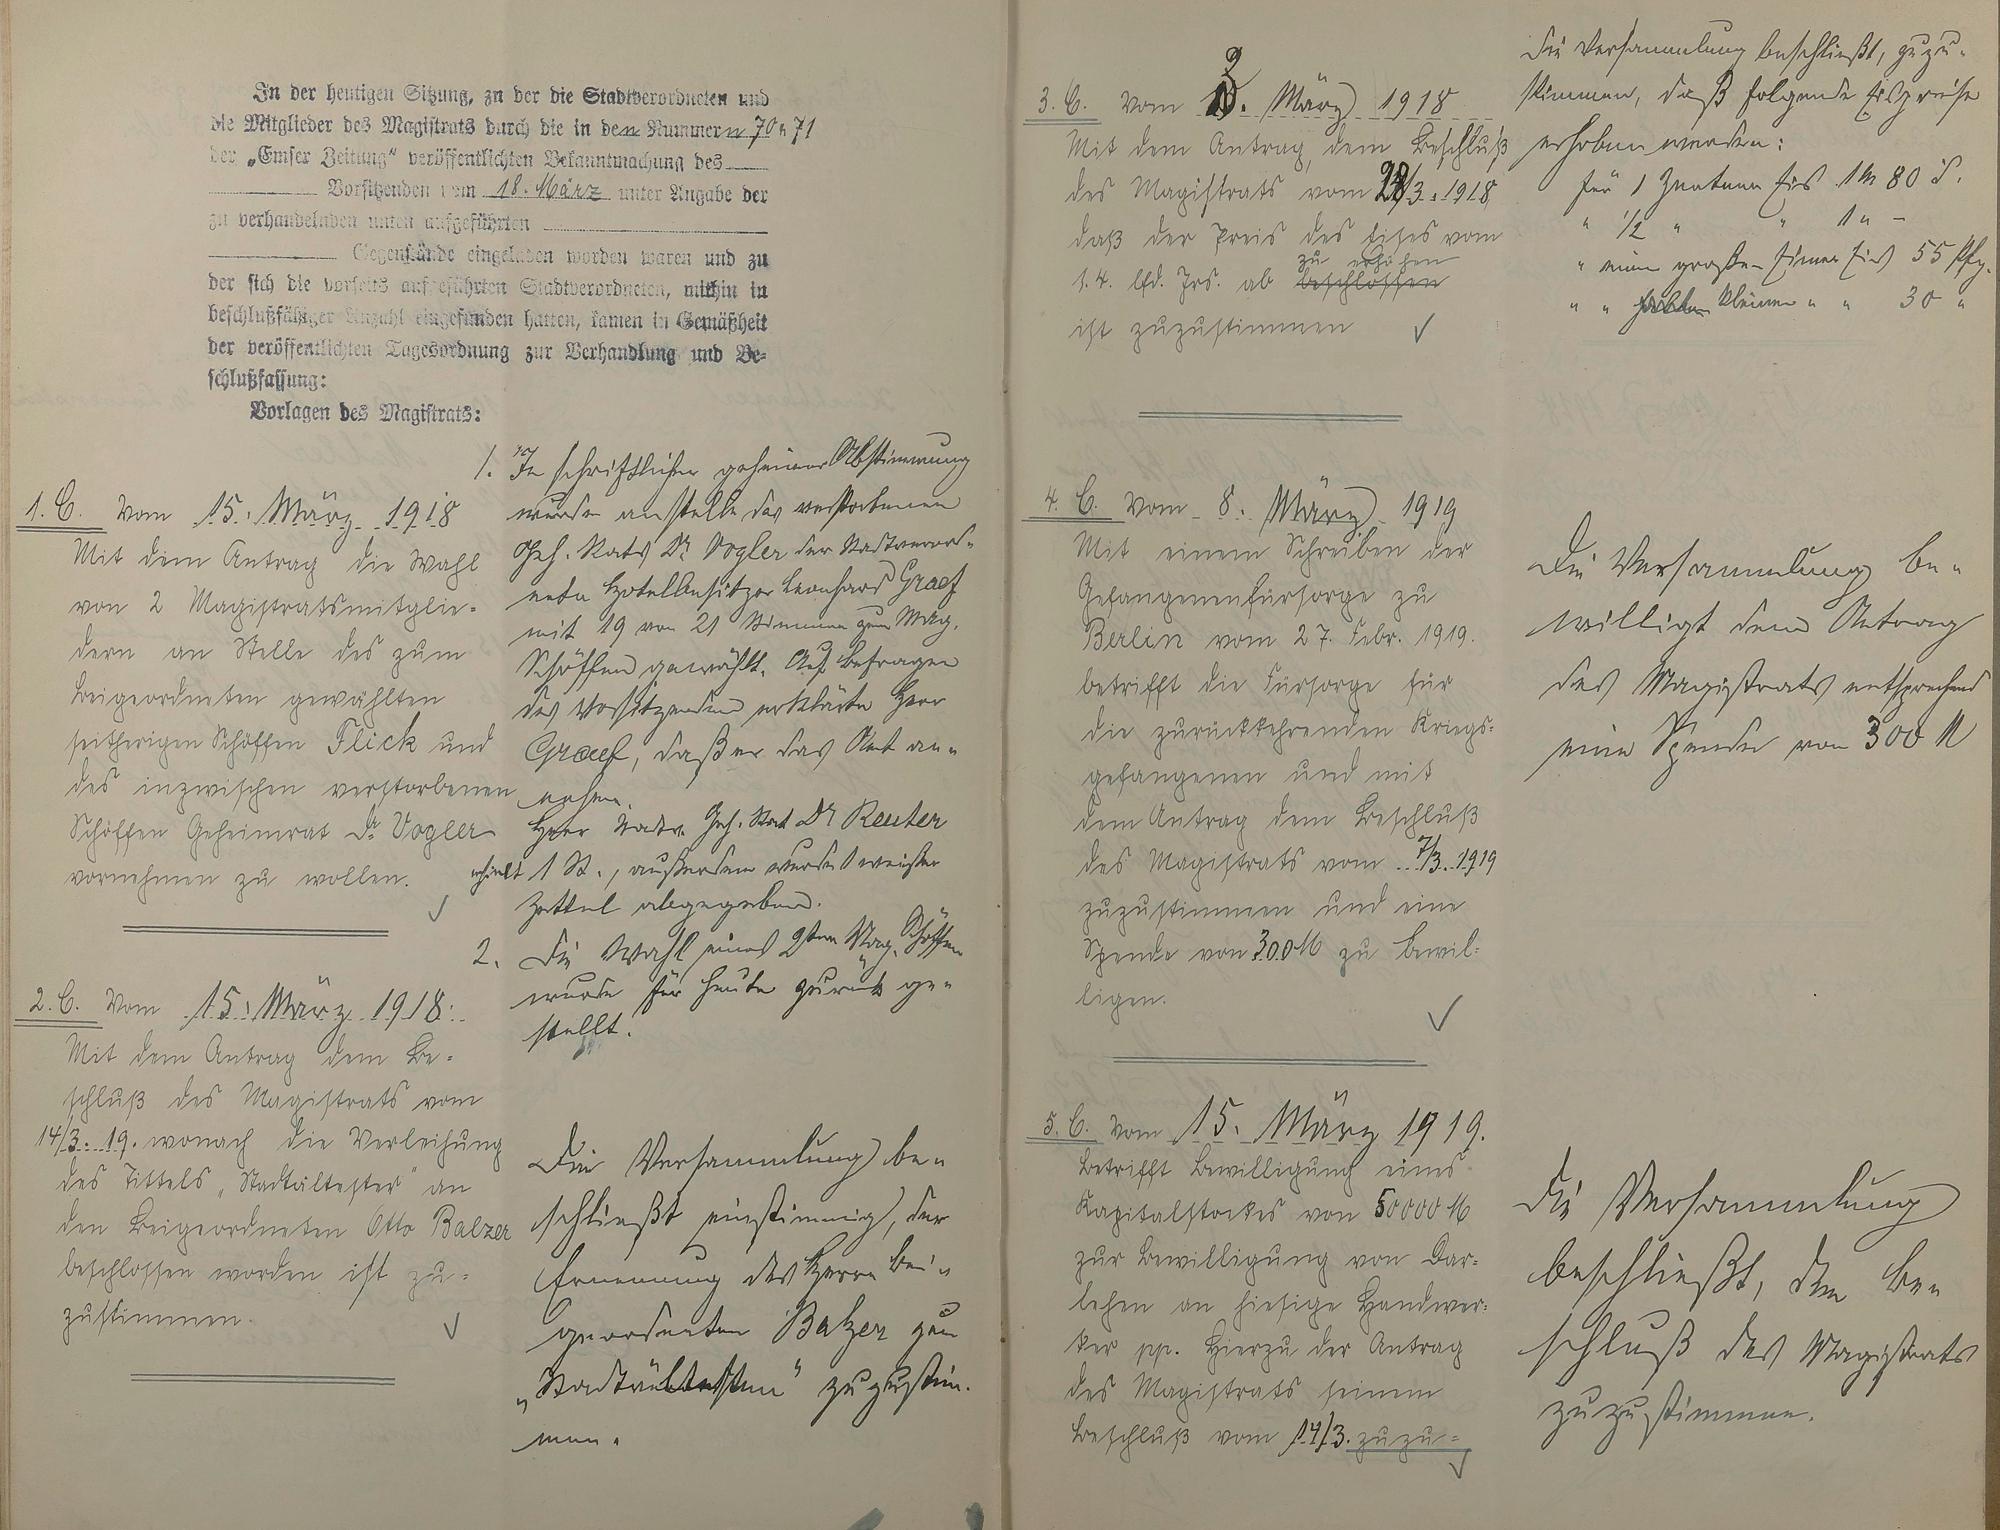 In der heutigen Sitzung, zu der die Stadtverordneten und
die Mitglieder des Magistrats durch die in den Nummern 70 u 71
der „Emser Zeitung“ veröffentlichten Bekanntmachung des
Vorsitzenden vom 18. März unter Angabe der
zu verhandelnden unten aufgeführten
Gegenstände eingeladen worden waren und zu
der sich die vorseits aufgeführten Stadtverordneten, mithin in
beschlußfähiger Anzahl eingefunden hatten, kamen in Gemäßheit
der veröffentlichten Tagesordnung zur Verhandlung und Be-
schlußfassung:
Vorlagen des Magistrats:
1. C. Vom 15. März 1918
Mit dem Antrag die Wahl
von 2 Magistratsmitglie-
dern an Stelle des zum
Beigeordneten gewählten
seitherigen Schöffen Flick und
des inzwischen verstorbenen
Schöffen Geheimrat Dr Vogler
vornehmen zu wollen.
1. In schriftlicher geheimer Abstimmung
wurde anstelle des verstorbenen
Geh. Rats Dr Vogler der Stadtverord-
nete Hotelbesitzer Leonhard Graef
mit 19 von 21 Stimmen zum Mag.
Schöffen gewählt. Auf Befragen
des Vorsitzenden erklärte Herr
Graef, daß er das Amt an-
nehme.
Herr Stadtv. Geh. Rat Dr Reuter
erhielt 1 St., außerdem wurde 1 weißer
Zettel abgegeben.
2. Die Wahl eines 2ten Mag. Schöffen
wurde für heute zurück ge-
stellt.
2. C. Vom 15. März 1918.
Mit dem Antrag dem Be-
schluß des Magistrats vom
14/3. 19. wonach die Verleihung
des Tittels „Stadtältester“ an
den Beigeordneten Otto Balzer
beschlossen worden ist zu-
zustimmen.
Die Versammlung be-
schließt einstimmig, der
Ernennung des Herrn Bei-
geordneten Balzer zum
„Stadtältesten“ zuzustim-
men.
3. C. Vom 9. März 1918
Mit dem Antrag, dem Beschluß
des Magistrats vom 28/3. 1918
daß der Preis des Eises vom
zu erhöhen
1.4. lfd. Jrs. ab beschlossen
ist zuzustimmen
Die Versammlung beschließt, zuzu-
stimmen, daß folgende Eispreise
erhoben werden:
für 1 Zentner Eis 1 M 80 S.
" 1/2 " " 1 " –
" einen großen Eimer Eis 55 Pfg.
" " kleinen " " 30 "
4. C. Vom 8. März 1919
Mit einem Schreiben der
Gefangenenfürsorge zu
Berlin vom 27. Febr. 1919.
betrifft die Fürsorge für
die zurückkehrenden Kriegs-
gefangenen und mit
dem Antrag dem Beschluß
des Magistrats vom 7/3. 1919
zuzustimmen und eine
Spende von 300 M zu bewil-
ligen.
Die Versammlung be-
willigt dem Antrag
des Magistrats entsprechend
eine Spende von 300 M
5. C. Vom 15. März 1919.
Betrifft Bewilligung eines
Kapitalstockes von 50000 M
zur Bewilligung von Dar-
lehen an hiesige Handwer-
ker pp. Hierzu der Antrag
des Magistrats seinem
Beschluß vom 14/3. zuzu-
Die Versammlung
beschließt, dem Be-
schluß des Magistrats
zuzustimmen.